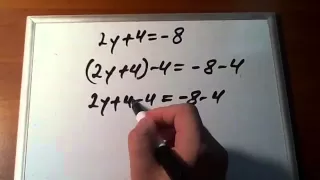 2y+4=-8
(2y+4)-4=-8-4
2y+4-4=-8-4